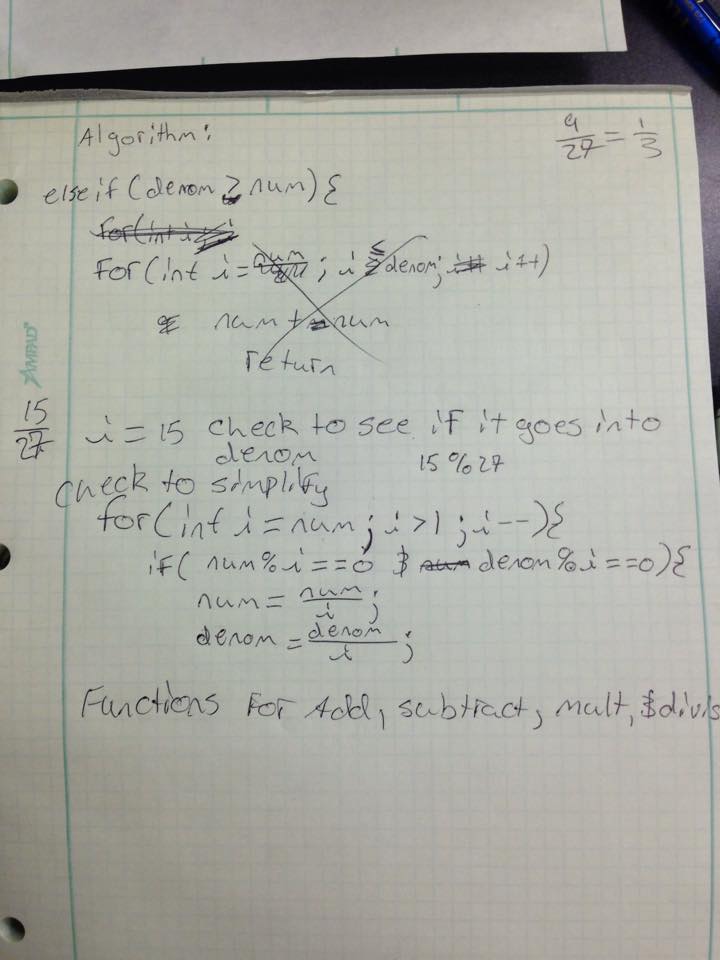 Algorithm:
9/27 = 1/3
else if (denom ≥ num) {
for(int i
for(int i = num ; i ≤ denom; i++)
num + = num
return
AMPAD
15/27 i = 15 check to see if it goes into
denom 15 % 27
check to simplify
for(int i = num ; i > 1 ; i--){
if( num % i == 0 $ num denom % i == 0){
num = num/i ;
denom = denom/i ;
Functions for Add, subtract, mult, $ divis